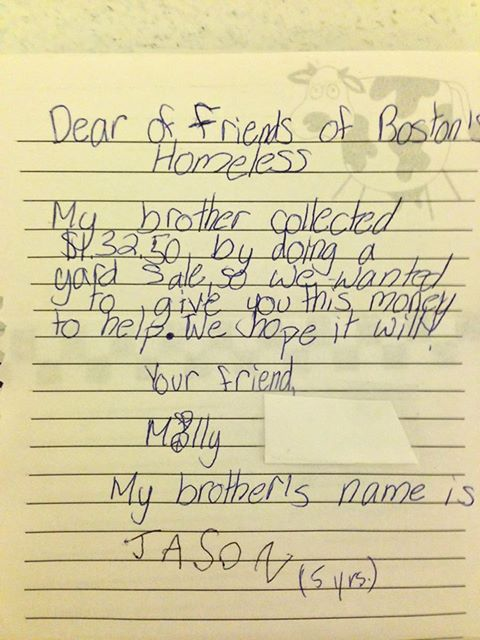 Dear of Friends of Boston's
Homeless
My brother collected
$1.32.50, by doing a
yard sale, so we wanted
to give you this money
to help. We hope it will!
Your friend,
Molly
My brother's name is
JASON
(5 yrs.)